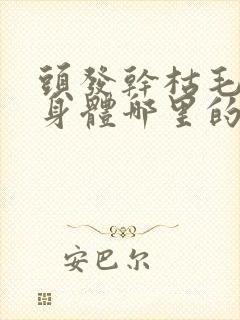 頭發幹枯毛
身體哪里的
安巴尔